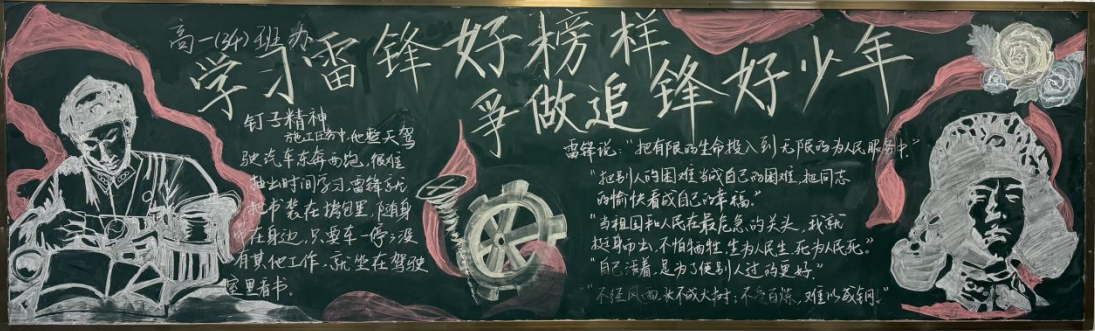 高一(34)班办
学习雷锋好榜样
争做追锋好少年
钉子精神
施工任务中,他整天驾
驶汽车东奔西跑,很难
抽出时间学习,雷锋就
把书装在挎包里,随身
带在身边,只要车一停,没
有其他工作,就坐在驾驶
室里看书。
雷锋说:“把有限的生命投入到无限的为人民服务中.”
“把别人的困难当成自己的困难,把同志
的愉快看成自己的幸福.”
“当祖国和人民在最危急的关头,我就
挺身而出,不怕牺牲,生为人民生,死为人民死.”
“自己活着,是为了使别人过的更好.”
“不经风雨,长不成大树;不受百炼,难以成钢.”